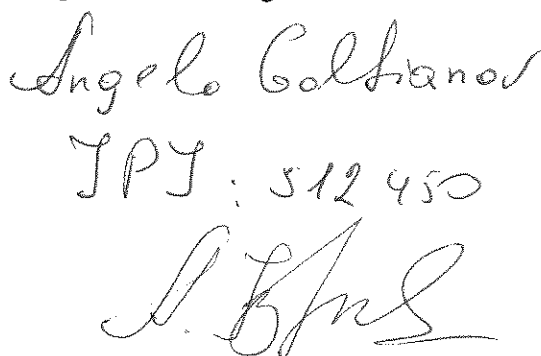 Angelo Goltianov
IPI: 512 450